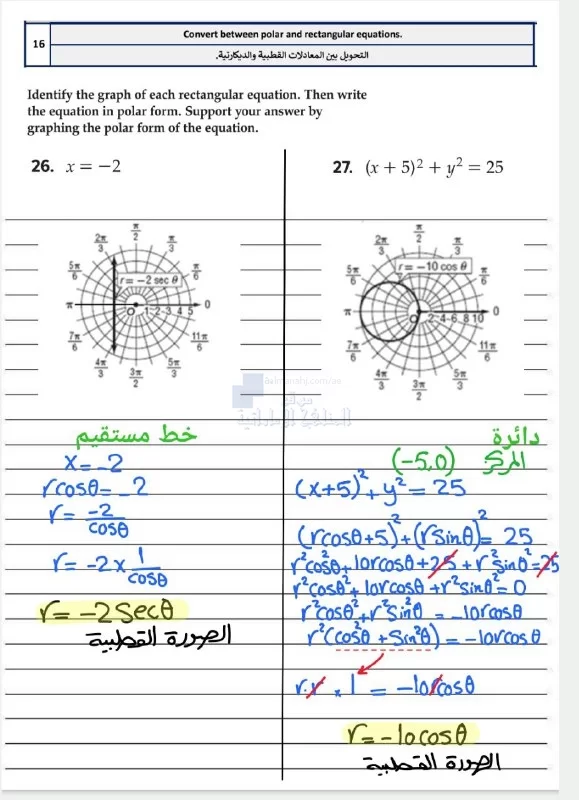 16
Convert between polar and rectangular equations.
التحويل بين المعادلات القطبية والديكارتية.
Identify the graph of each rectangular equation. Then write
the equation in polar form. Support your answer by
graphing the polar form of the equation.
26. x = −2
π/2
2π/3 π/3
5π/6 π/6
r = −2 sec θ
π O 1 2 3 4 5 0
7π/6 11π/6
4π/3 5π/3
3π/2
خط مستقيم
x = -2
rcosθ = -2
r = -2/cosθ
r = -2 × 1/cosθ
r = -2 secθ
الصورة القطبية
27. (x + 5)² + y² = 25
π/2
2π/3 π/3
5π/6 π/6
r = −10 cos θ
π O 2 4 6 8 10 0
7π/6 11π/6
4π/3 5π/3
3π/2
almanahj.com/ae
موقع
المناهج الإماراتية
دائرة
المركز (-5,0)
(x+5)² + y² = 25
(rcosθ+5)² + (rsinθ)² = 25
r²cos²θ + 10rcosθ + 25 + r²sin²θ = 25
r²cos²θ + 10rcosθ + r²sin²θ = 0
r²cos²θ + r²sin²θ = -10rcosθ
r²(cos²θ + sin²θ) = -10rcosθ
r.r × 1 = -10rcosθ
r = -10cosθ
الصورة القطبية